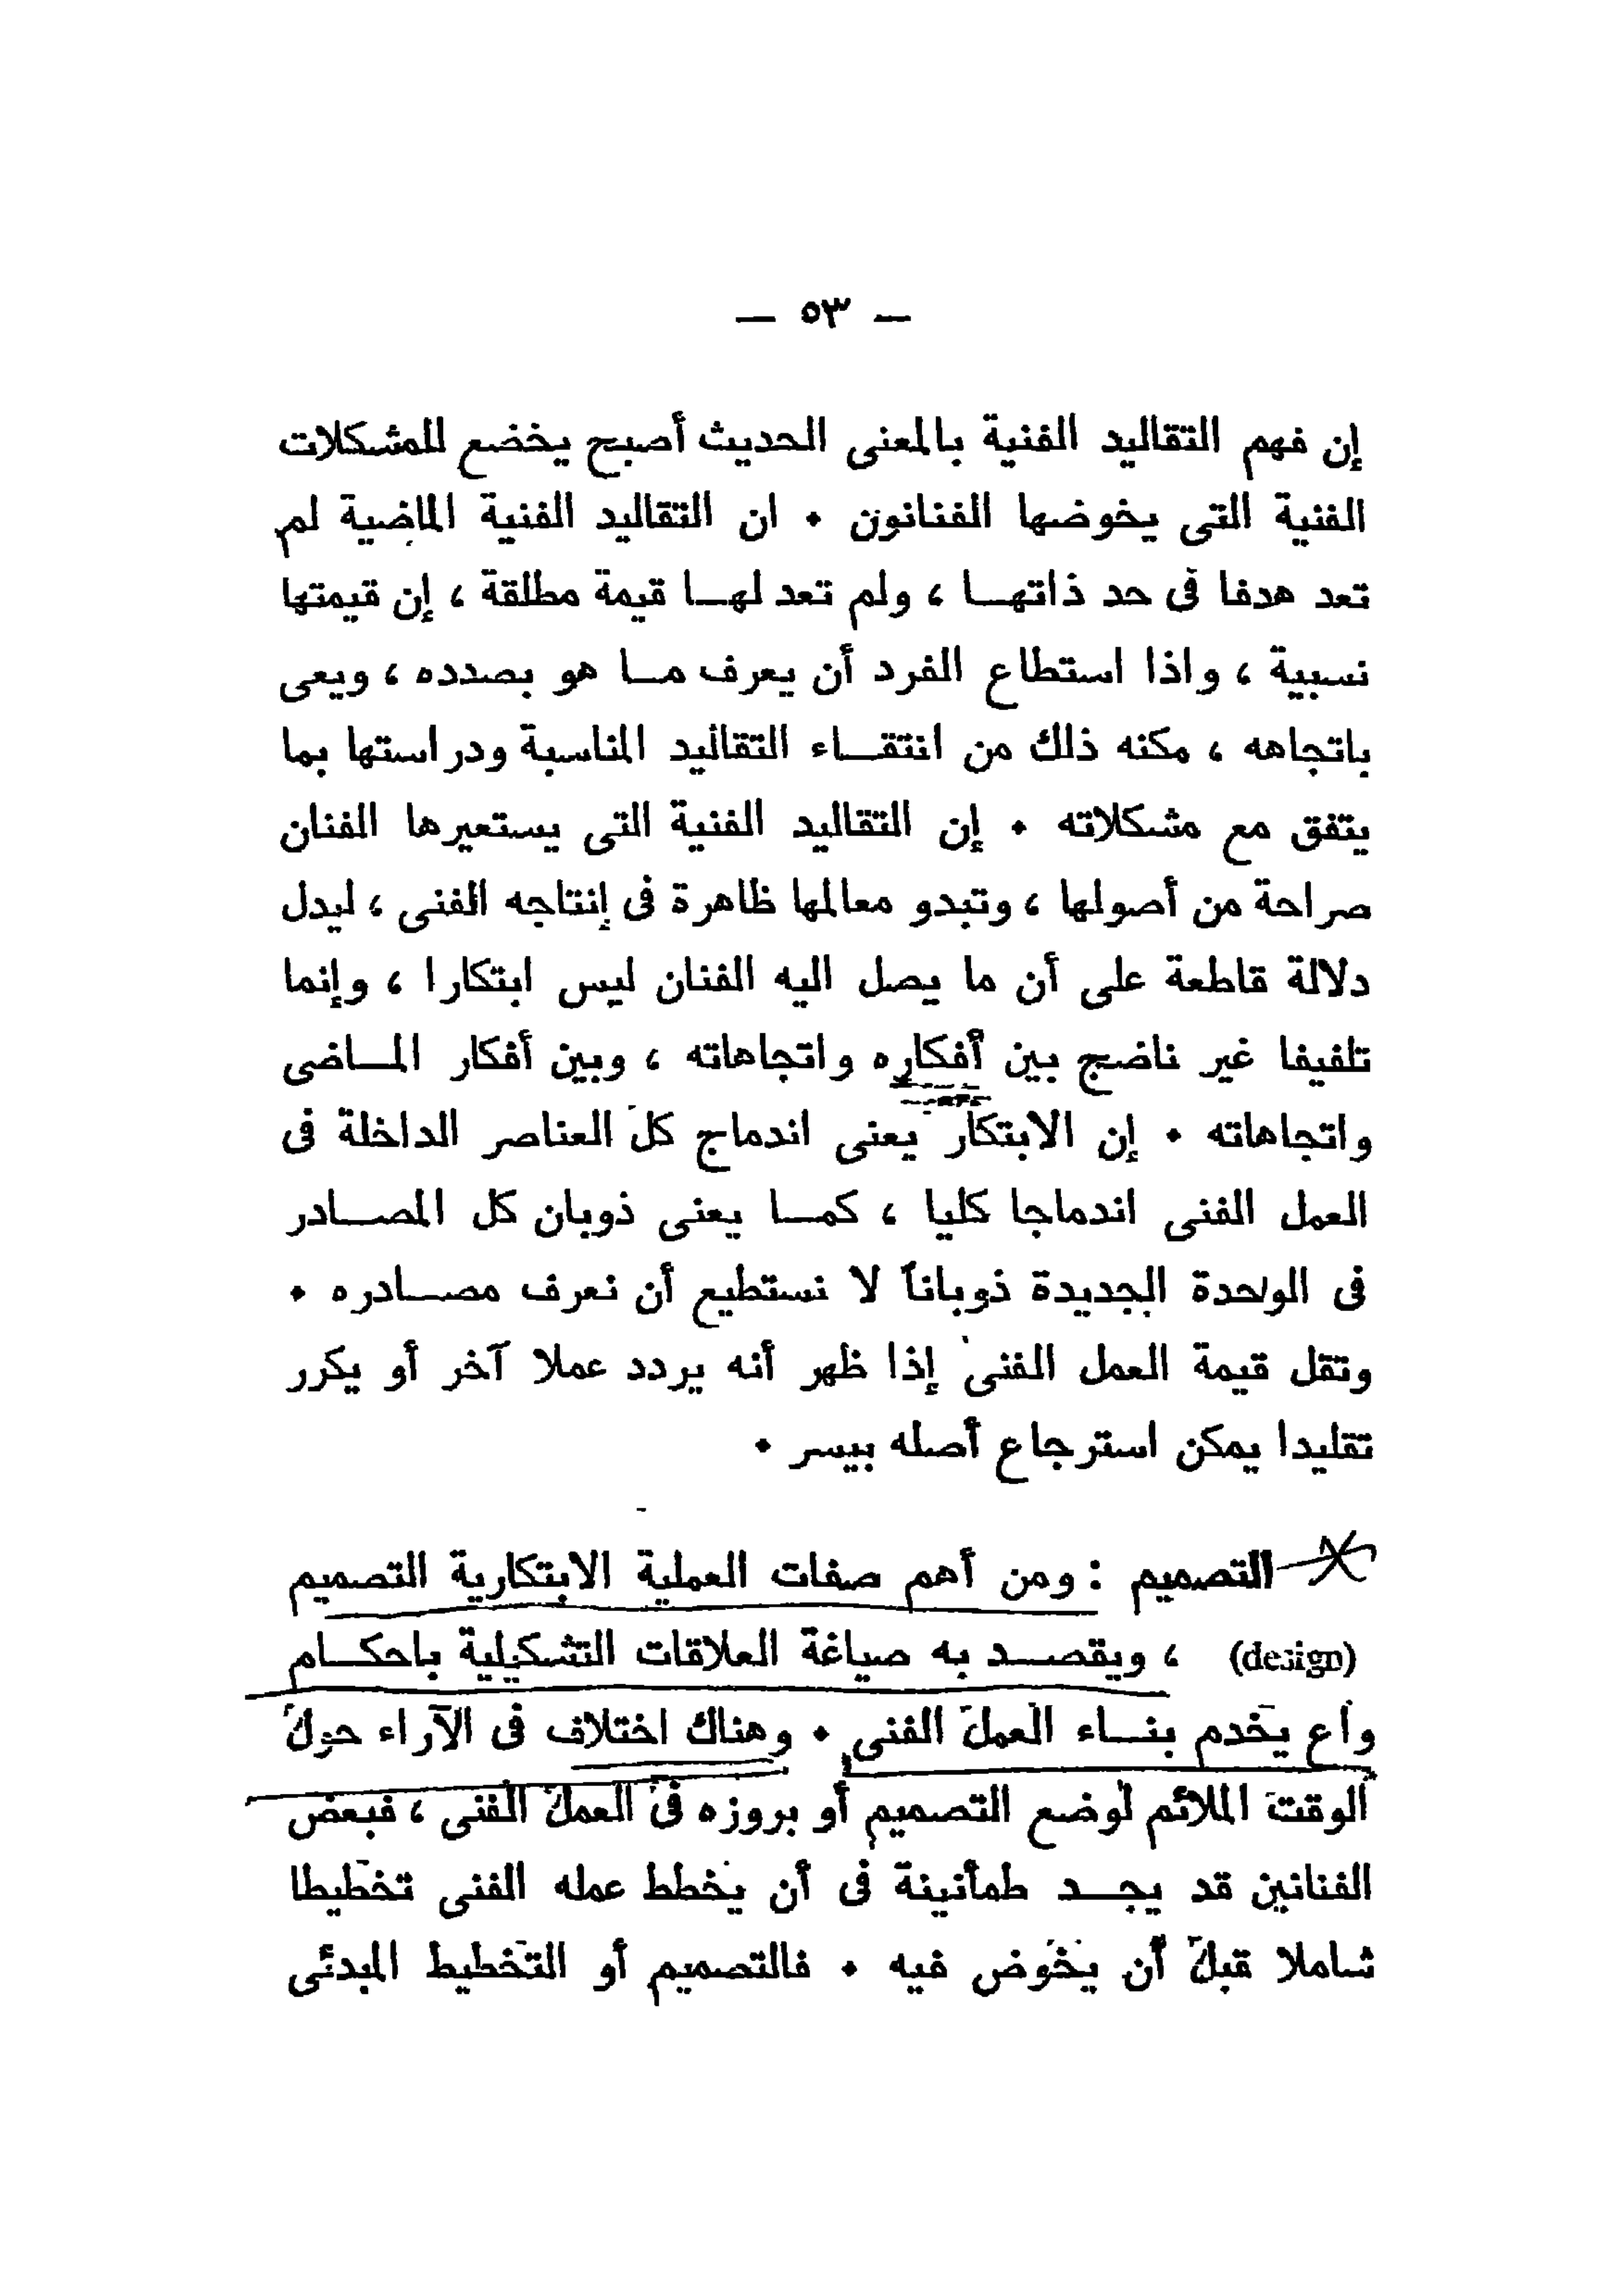 — ٥٣ —
إن فهم التقاليد الفنية بالمعنى الحديث أصبح يخضع للمشكلات
الفنية التى يخوضها الفنانون ٠ ان التقاليد الفنية الماضية لم
تعد هدفا فى حد ذاتهـا ، ولم تعد لهـا قيمة مطلقة ، إن قيمتها
نسبية ، واذا استطاع الفرد أن يعرف مـا هو بصدده ، ويعى
باتجاهه ، مكنه ذلك من انتقـاء التقاليد المناسبة ودراستها بما
يتفق مع مشكلاته ٠ إن التقاليد الفنية التى يستعيرها الفنان
صراحة من أصولها ، وتبدو معالمها ظاهرة فى إنتاجه الفنى ، ليدل
دلالة قاطعة على أن ما يصل اليه الفنان ليس ابتكارا ، وإنما
تلفيفا غير ناضج بين أفكاره واتجاهاته ، وبين أفكار المـاضى
واتجاهاته ٠ إن الابتكار يعنى اندماج كل العناصر الداخلة فى
العمل الفنى اندماجا كليا ، كمـا يعنى ذوبان كل المصـادر
فى الواحدة الجديدة ذوباناً لا نستطيع أن نعرف مصـادره ٠
وتقل قيمة العمل الفنى إذا ظهر أنه يردد عملا آخر أو يكرر
تقليدا يمكن استرجاع أصله بيسر ٠
التصميم : ومن أهم صفات العملية الابتكارية التصميم
(design) ، ويقصـد به صياغة العلاقات التشكيلية باحكـام
واع يخدم بنـاء العمل الفنى ٠ وهناك اختلاف فى الآراء حول
الوقت الملائم لوضع التصميم أو بروزه فى العمل الفنى ، فبعض
الفنانين قد يجـد طمأنينة فى أن يخطط عمله الفنى تخطيطا
شاملا قبل أن يخوض فيه ٠ فالتصميم أو التخطيط المبدئى